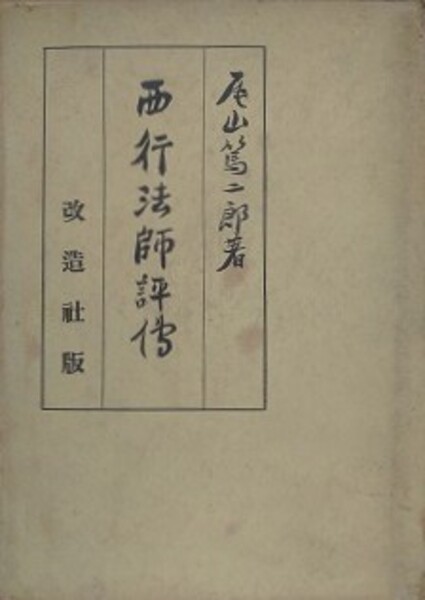 尾山篤二郎著
西行法師評傳
改造社版